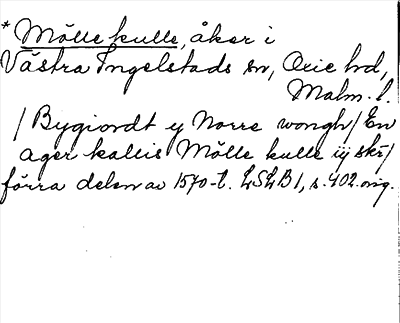 * Mölle kulle, åker i
Västra Ingelstads sn, Oxie hd,
Malm. l.
/ Bygiordt y Norre wongh / En
ager kallis Mölle kulle iij skr /
förra delen av 1570-t. LSLB 1, s. 402 orig.